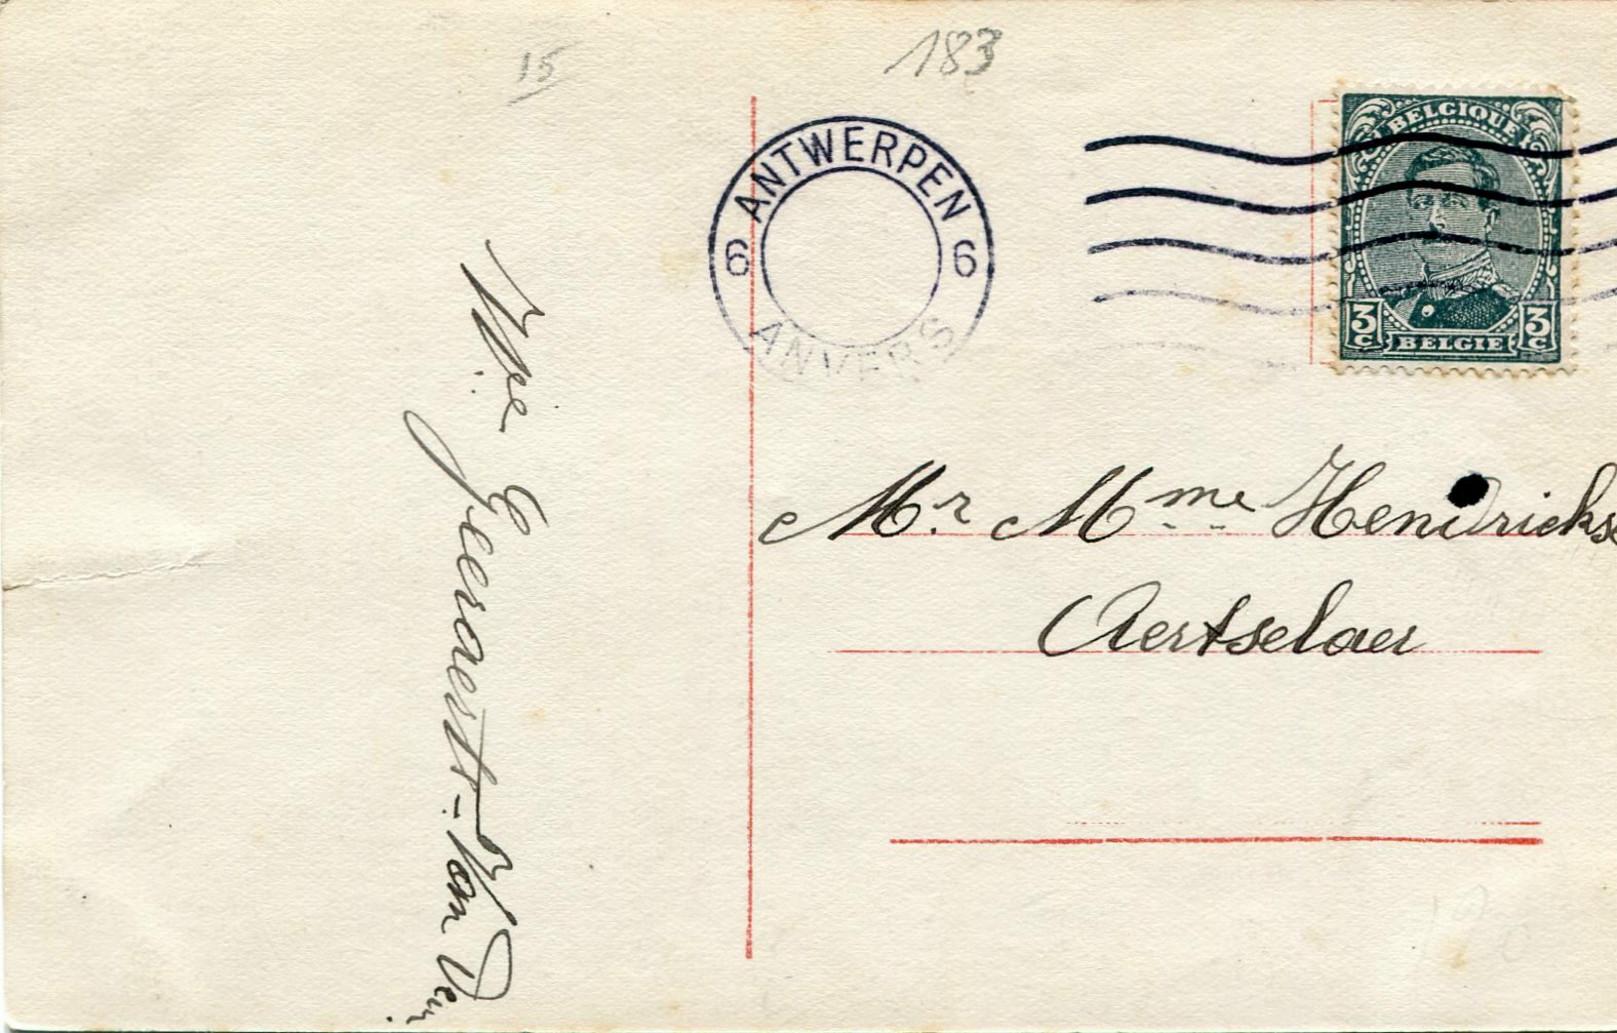 15
183
ANTWERPEN
6 6
ANVERS
BELGIQUE
3 C 3 C
BELGIE
Mr. Mme Hendrickse
Aertselaer
Wwe Geeraerts-Van